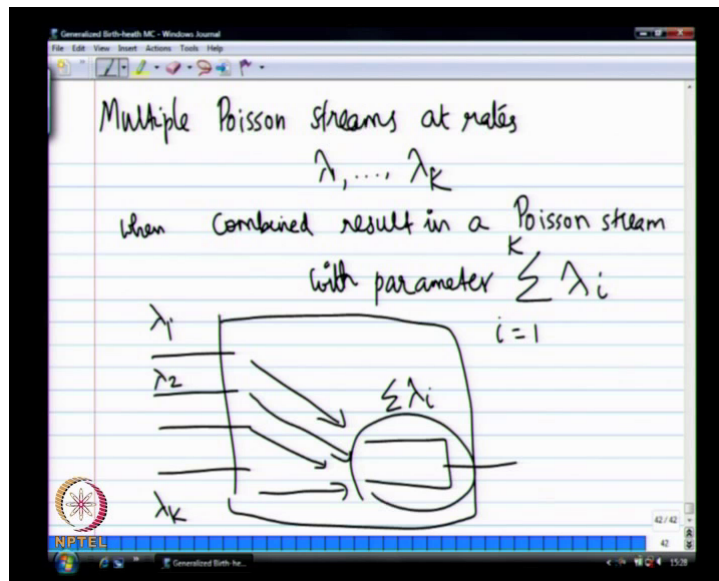 Generalized Birth-heath MC - Windows Journal
File Edit View Insert Actions Tools Help
Multiple Poisson streams at rates
λ1, ..., λK
when combined result in a Poisson stream
with parameter
K
∑ λi
i = 1
λ1
λ2
∑λi
λK
42 / 42
42
NPTEL
Generalized Birth-he...
15:28